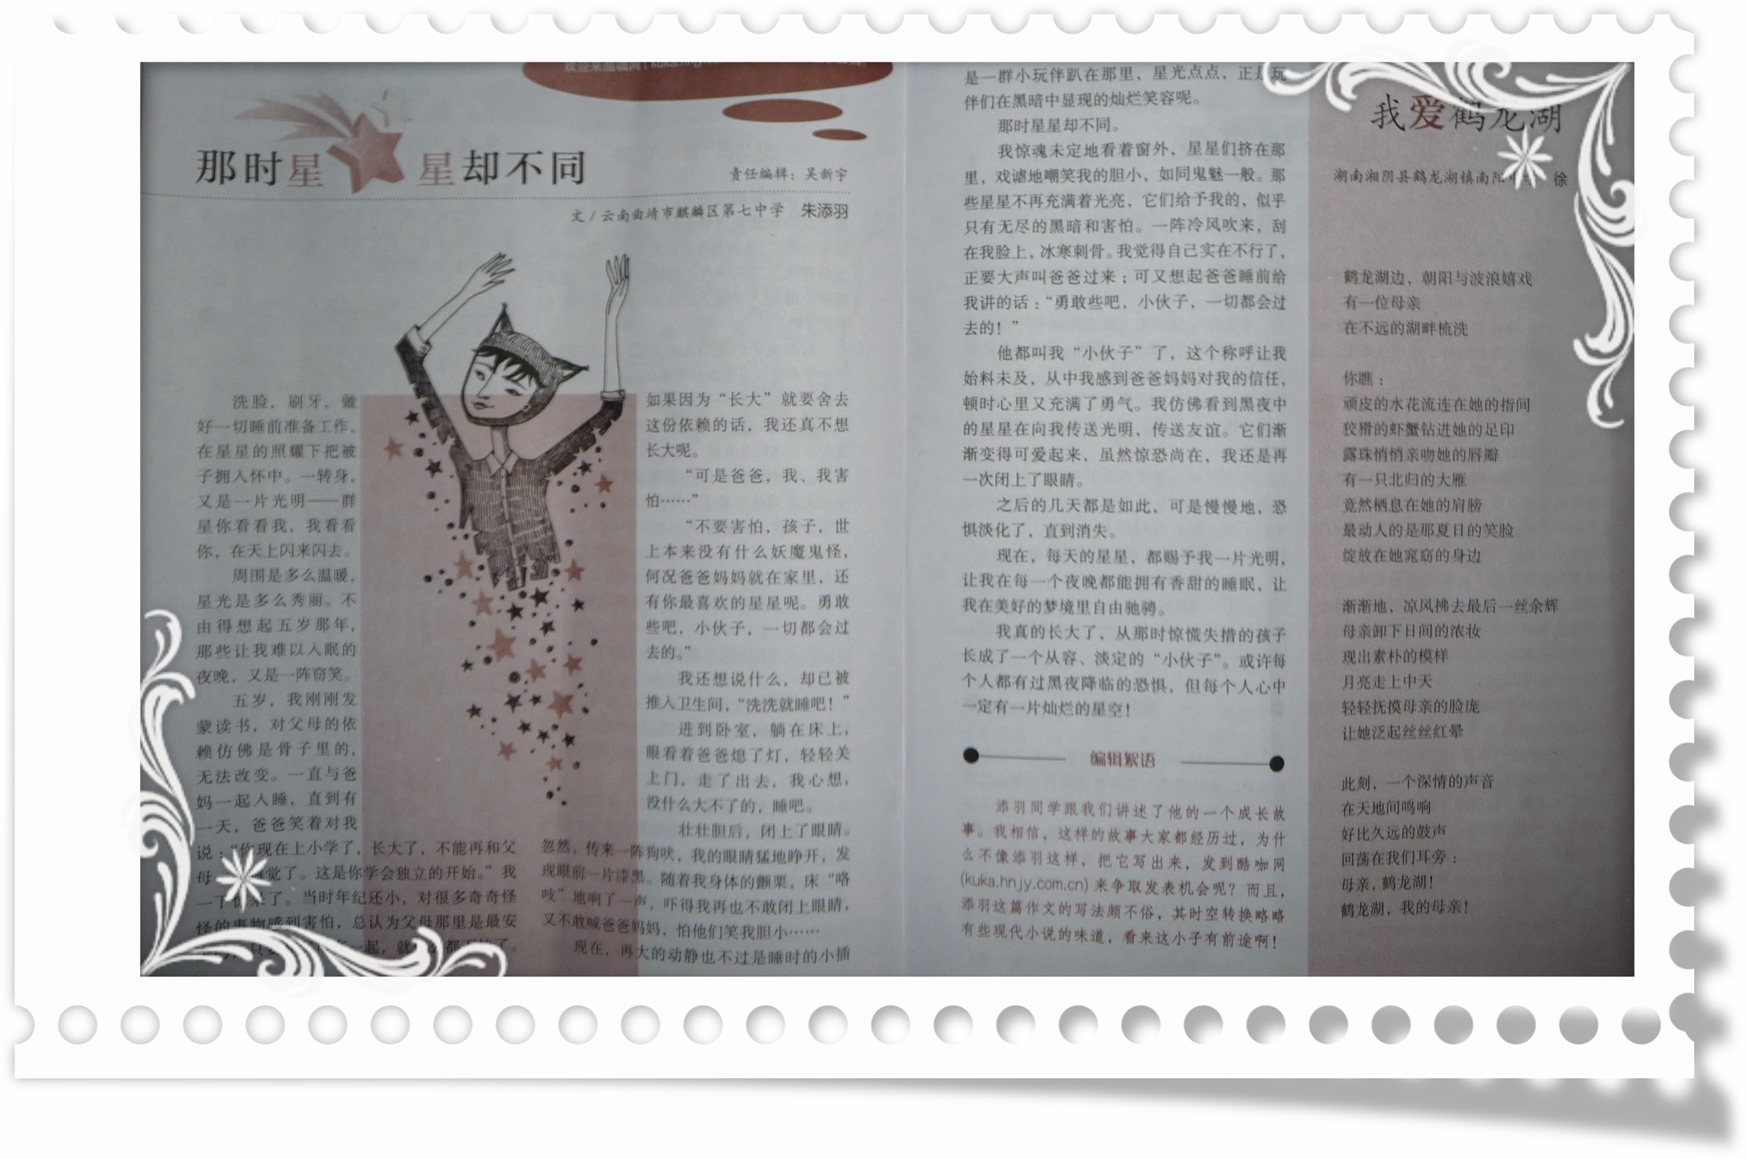 那时星星却不同
责任编辑：吴新宇
文／云南曲靖市麒麟区第七中学 朱添羽
洗脸，刷牙，做
好一切睡前准备工作。
在星星的照耀下把被
子拥入怀中。一转身，
又是一片光明——群
星你看看我，我看看
你，在天上闪来闪去。
周围是多么温暖，
星光是多么秀丽。不
由得想起五岁那年，
那些让我难以入眠的
夜晚，又是一阵窃笑。
五岁，我刚刚发
蒙读书，对父母的依
赖仿佛是骨子里的，
无法改变。一直与爸
妈一起入睡，直到有
一天，爸爸笑着对我
说：“你现在上小学了，长大了，不能再和父
母 觉了。这是你学会独立的开始。”我
一下 了。当时年纪还小，对很多奇奇怪
怪的事物感到害怕，总认为父母那里是最安
一起，就 都 了。
如果因为“长大”就要舍去
这份依赖的话，我还真不想
长大呢。
“可是爸爸，我、我害
怕……”
“不要害怕，孩子，世
上本来没有什么妖魔鬼怪，
何况爸爸妈妈就在家里，还
有你最喜欢的星星呢。勇敢
些吧，小伙子，一切都会过
去的。”
我还想说什么，却已被
推入卫生间，“洗洗就睡吧！”
进到卧室，躺在床上，
眼看着爸爸熄了灯，轻轻关
上门，走了出去，我心想，
没什么大不了的，睡吧。
壮壮胆后，闭上了眼睛。
忽然，传来一阵狗吠，我的眼睛猛地睁开，发
现眼前一片漆黑。随着我身体的颤栗，床“咯
吱”地响了一声，吓得我再也不敢闭上眼睛，
又不敢喊爸爸妈妈，怕他们笑我胆小……
现在，再大的动静也不过是睡时的小插
是一群小玩伴趴在那里，星光点点，正是玩
伴们在黑暗中显现的灿烂笑容呢。
那时星星却不同。
我惊魂未定地看着窗外，星星们挤在那
里，戏谑地嘲笑我的胆小，如同鬼魅一般。那
些星星不再充满着光亮，它们给予我的，似乎
只有无尽的黑暗和害怕。一阵冷风吹来，刮
在我脸上，冰寒刺骨。我觉得自己实在不行了，
正要大声叫爸爸过来；可又想起爸爸睡前给
我讲的话：“勇敢些吧，小伙子，一切都会过
去的！”
他都叫我“小伙子”了，这个称呼让我
始料未及，从中我感到爸爸妈妈对我的信任，
顿时心里又充满了勇气。我仿佛看到黑夜中
的星星在向我传送光明，传送友谊。它们渐
渐变得可爱起来，虽然惊恐尚在，我还是再
一次闭上了眼睛。
之后的几天都是如此，可是慢慢地，恐
惧淡化了，直到消失。
现在，每天的星星，都赐予我一片光明，
让我在每一个夜晚都能拥有香甜的睡眠，让
我在美好的梦境里自由驰骋。
我真的长大了，从那时惊慌失措的孩子
长成了一个从容、淡定的“小伙子”。或许每
个人都有过黑夜降临的恐惧，但每个人心中
一定有一片灿烂的星空！
编辑絮语
添羽同学跟我们讲述了他的一个成长故
事。我相信，这样的故事大家都经历过，为什
么不像添羽这样，把它写出来，发到酷咖网
(kuka.hnjy.com.cn)来争取发表机会呢？而且，
添羽这篇作文的写法颇不俗，其时空转换略略
有些现代小说的味道，看来这小子有前途啊！
我爱鹤龙湖
湖南湘阴县鹤龙湖镇南阳 徐
鹤龙湖边，朝阳与波浪嬉戏
有一位母亲
在不远的湖畔梳洗
你瞧：
顽皮的水花流连在她的指间
狡猾的虾蟹钻进她的足印
露珠悄悄亲吻她的唇瓣
有一只北归的大雁
竟然栖息在她的肩膀
最动人的是那夏日的笑脸
绽放在她窈窕的身边
渐渐地，凉风拂去最后一丝余辉
母亲卸下日间的浓妆
现出素朴的模样
月亮走上中天
轻轻抚摸母亲的脸庞
让她泛起丝丝红晕
此刻，一个深情的声音
在天地间鸣响
好比久远的鼓声
回荡在我们耳旁：
母亲，鹤龙湖！
鹤龙湖，我的母亲！